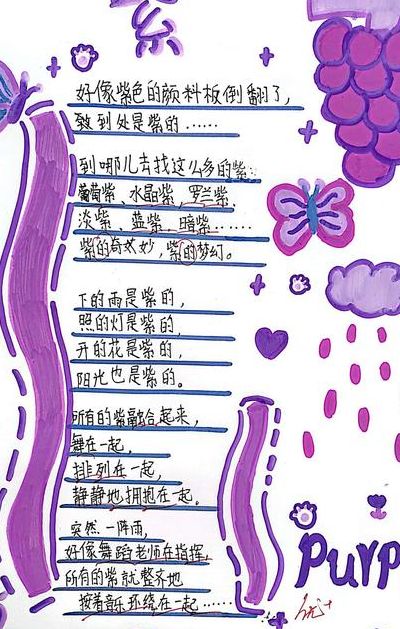 紫
好像紫色的颜料板倒翻了，
致到处是紫的……
到哪儿去找这么多的紫：
葡萄紫、水晶紫、罗兰紫、
淡紫、蓝紫、暗紫……
紫的奇妙，紫的梦幻。
下的雨是紫的，
照的灯是紫的，
开的花是紫的，
阳光也是紫的。
所有的紫融合起来，
舞在一起，
排列在一起，
静静地拥抱在一起。
突然一阵雨，
好像舞蹈老师在指挥，
所有的紫就整齐地
按着音乐环绕在一起……
Purp